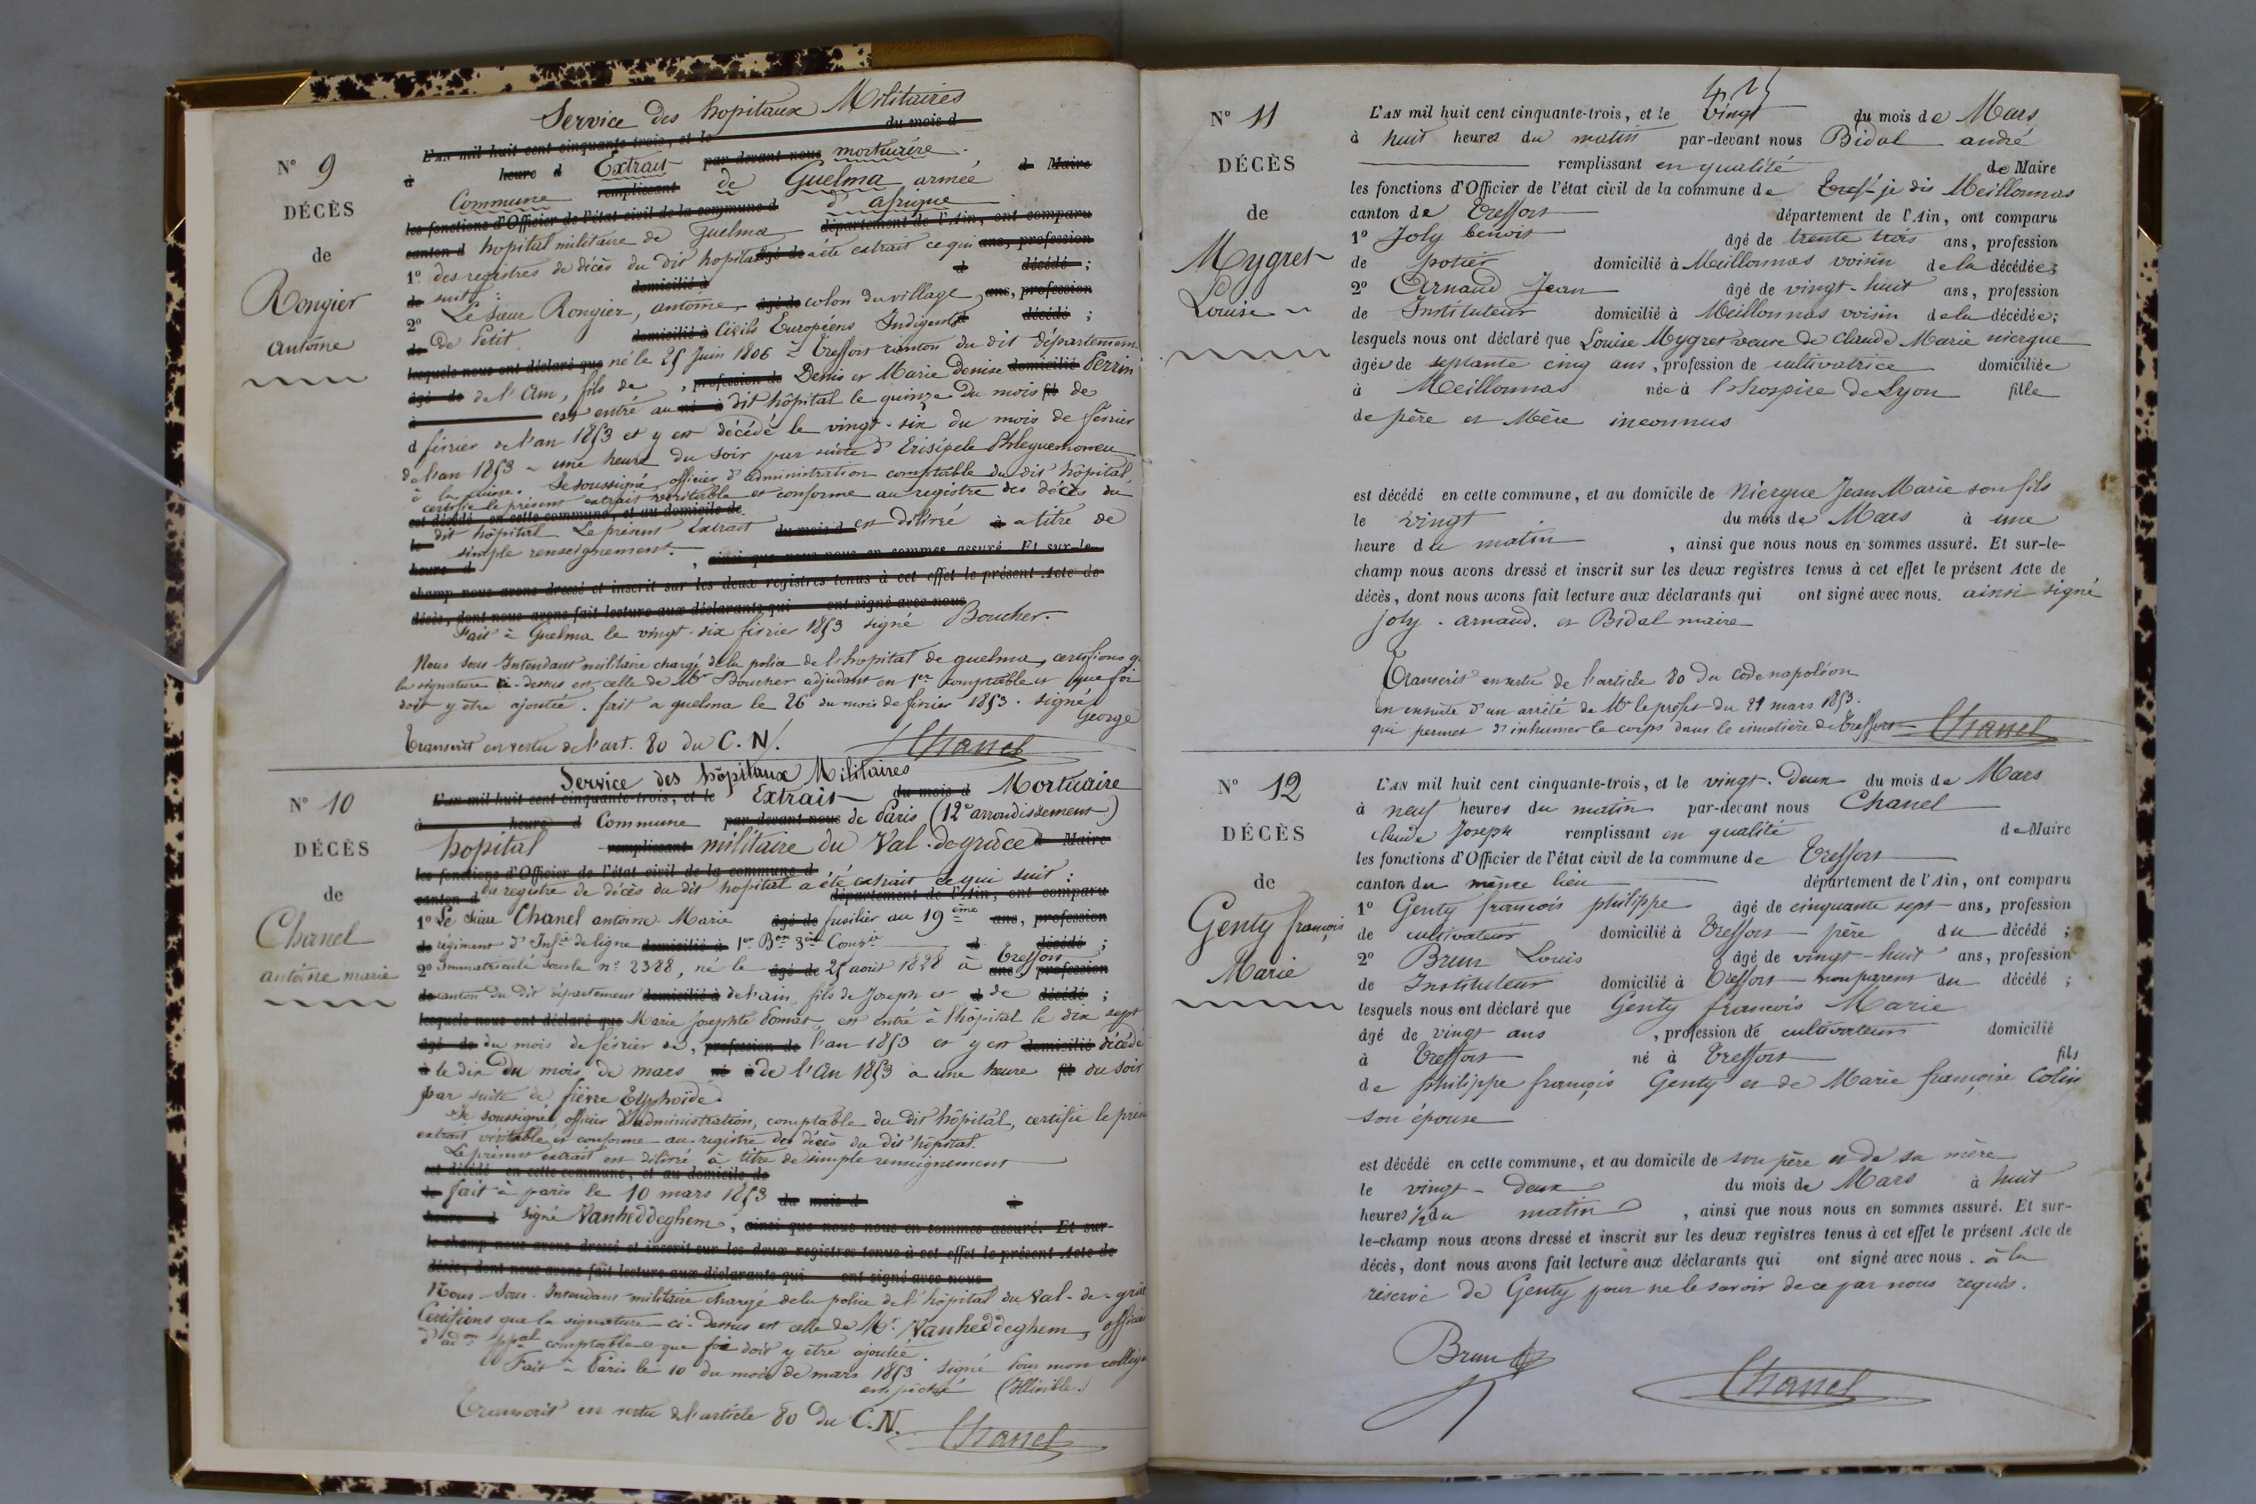 Service des hopitaux Militaires
L'an mil huit cent cinquante-trois, et le du mois d
N° 9
à heure d Extrait par-devant nous mortuaire
Commune remplissant de Guelma armée d Maire
DÉCÈS
les fonctions d'Officier de l'état civil de la commune d d'afrique
de
canton d hopital militaire de Guelma département de l'Ain, ont comparu
Rongier
antoine
1° des registres de décès du dit hopital âgé de a été extrait ce qui ans, profession
de suit : domicilié à d décédé ;
2° Le sieur Rongier, antoine, âgé de colon du village ans, profession
de De Petit domicilié à Civils Européens Indigents d décédé ;
lesquels nous ont déclaré que né le 25 Juin 1806 à Treffort canton du dit département
âgé de de l'ain, fils de , profession de Denis et Marie denise domicilié Perrin
à est entré au né à dit hôpital le quinze du mois fil de
d février de l'an 1853 et y est décédé le vingt-six du mois de février
de l'an 1853 à une heure du soir par suite d'Erisipele Phleguemoneu
à la cuisse. Je soussigné, officier d'administration comptable du dit hôpital,
certifie le présent extrait veritable et conforme au registre des décès du
est décédé en cette commune, et au domicile de
le dit hôpital Le présent Extrait du mois d est délivré à a titre de
heure d simple renseignement. , ainsi que nous nous en sommes assuré. Et sur-le-
champ nous avons dressé et inscrit sur les deux registres tenus à cet effet le présent Acte de
décès, dont nous avons fait lecture aux déclarants qui ont signé avec nous
Fait à Guelma le vingt-six février 1853 signé Boucher.
Nous Sous-Intendant militaire chargé de la police de l'hopital de guelma, certifions q
la signature ci-dessus est celle de Mr Boucher adjudant en 1er comptable et que foi
doit y être ajoutée. fait a guelma le 26 du mois de février 1853. signé
George
Transcrit en vertu de l'art. 80 du C. N. Chanel
Service des hôpitaux Militaires
N° 10
L'an mil huit cent cinquante-trois, et le Extrait du mois d Mortuaire
à heure d Commune par-devant nous de Paris (12e arrondissement)
DÉCÈS
hopital remplissant militaire du Val-de grâce d Maire
les fonctions d'Officier de l'état civil de la commune d
de
canton d du registre de décès du dit hopital a été extrait ce qui suit : département de l'Ain, ont comparu
Chanel
antoine marie
1° Le sieur Chanel antoine Marie âgé de fusilier au 19ème ans, profession
de régiment d'Infie de ligne domicilié à 1er Bon 3me Compie d décédé ;
2° Immatriculé sous le n° 2388, né le âgé de 25 août 1828 à Treffort ans profession
de canton du dit département domicilié à de l'ain, fils de Joseph et d de décédé ;
lesquels nous ont déclaré que Marie Josephte Pomat, est entré à l'hôpital le dix sept
âgé de du mois de février de , profession de l'an 1853 et y est domicilié décédé
à le dix du mois de mars né à de l'an 1853 à une heure fil du soir
par suite de fièvre Typhoïde.
Je soussigné, officier d'administration, comptable du dit hôpital, certifie le prés
extrait véritable et conforme au registre des décès du dit hôpital.
Le présent extrait est délivré à titre de simple renseignement
est décédé en cette commune, et au domicile de
le fait à paris le 10 mars 1853 du mois d à
heure d signé Vanheddeghem , ainsi que nous nous en sommes assuré. Et sur-
le-champ nous avons dressé et inscrit sur les deux registres tenus à cet effet le présent Acte de
décès, dont nous avons fait lecture aux déclarants qui ont signé avec nous
Nous Sous-Intendant militaire chargé de la police de l'hôpital du Val-de-grâ
Certifions que la signature ci-dessus est celle de Mr Vanheddeghem, officie
d'adon ppal comptable et que foi doit y être ajoutée.
Fait à Paris le 10 du mois de mars 1853. signé pour mon collègu
empêché (Illisible.)
Transcrit en vertu de l'article 80 du C. N. Chanel
N° 11
L'AN mil huit cent cinquante-trois, et le vingt du mois de Mars
à huit heures du matin par-devant nous Bidal andré
DÉCÈS
remplissant en qualité de Maire
les fonctions d'Officier de l'état civil de la commune de Tref- je dis Meillonnas
de
canton de Treffort département de l'Ain, ont comparu
Mygret
Louise
1° Joly benoit âgé de trente trois ans, profession
de potier domicilié à Meillonnas voisin de la décédée ;
2° Arnaud Jean âgé de vingt-huit ans, profession
de Instituteur domicilié à Meillonnas voisin de la décédée ;
lesquels nous ont déclaré que Louise Mygret veuve de Claude Marie nierque
âgée de septante cinq ans, profession de cultivatrice domiciliée
à Meillonnas née à l'hospice de Lyon fille
de père et Mère inconnus
est décédé en cette commune, et au domicile de Nierque Jean Marie son fils
le vingt du mois de Mars à une
heure du matin , ainsi que nous nous en sommes assuré. Et sur-le-
champ nous avons dressé et inscrit sur les deux registres tenus à cet effet le présent Acte de
décès, dont nous avons fait lecture aux déclarants qui ont signé avec nous. ainsi signé
Joly. arnaud. et Bidal maire
Transcrit en vertu de l'article 80 du Code napoléon
en ensuite d'un arrêté de Mr le préfet du 21 mars 1853.
qui permet d'inhumer le corps dans le cimetière de Treffort Chanel
N° 12
L'AN mil huit cent cinquante-trois, et le vingt-deux du mois de Mars
à neuf heures du matin par-devant nous Chanel
DÉCÈS
claude Joseph remplissant en qualité de Maire
les fonctions d'Officier de l'état civil de la commune de Treffort
de
canton du même lieu département de l'Ain, ont comparu
Genty françois
Marie
1° Genty francois philippe âgé de cinquante sept ans, profession
de cultivateur domicilié à Treffort père du décédé ;
2° Brun Louis âgé de vingt-huit ans, profession
de Instituteur domicilié à Treffort non parent du décédé ;
lesquels nous ont déclaré que Genty francois Marie
âgé de vingt ans , profession de cultivateur domicilié
à Treffort né à Treffort fils
de philippe françois Genty et de Marie françoise Colin
son épouse
est décédé en cette commune, et au domicile de son père et de sa mère
le vingt-deux du mois de Mars à huit
heures ½ du matin , ainsi que nous nous en sommes assuré. Et sur-
le-champ nous avons dressé et inscrit sur les deux registres tenus à cet effet le présent Acte de
décès, dont nous avons fait lecture aux déclarants qui ont signé avec nous. à la
réserve de Genty pour ne le savoir de ce par nous requis.
Brun
Chanel